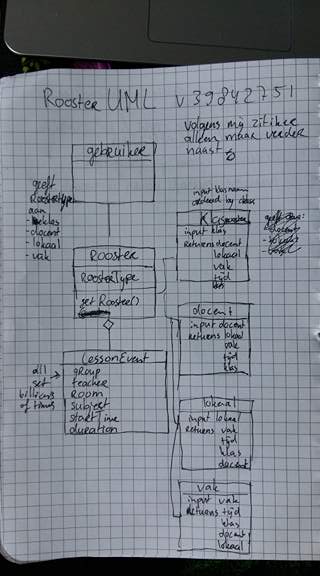 Rooster UML v39842751
volgens mij zit ik er
alleen maar verder
naast
gebruiker
geeft
RoosterType
aan
- klas
- docent
- lokaal
- vak
Rooster
RoosterType
get Rooster()
all
get
billions
of times
LessonEvent
group
teacher
Room
subject
startTime
duration
input klasnaam
Klasrooster
input klas
returns docent
lokaal
vak
tijd
docent
input docent
returns lokaal
vak
tijd
klas
lokaal
input lokaal
returns vak
tijd
klas
docent
vak
input vak
returns tijd
klas
docent
lokaal